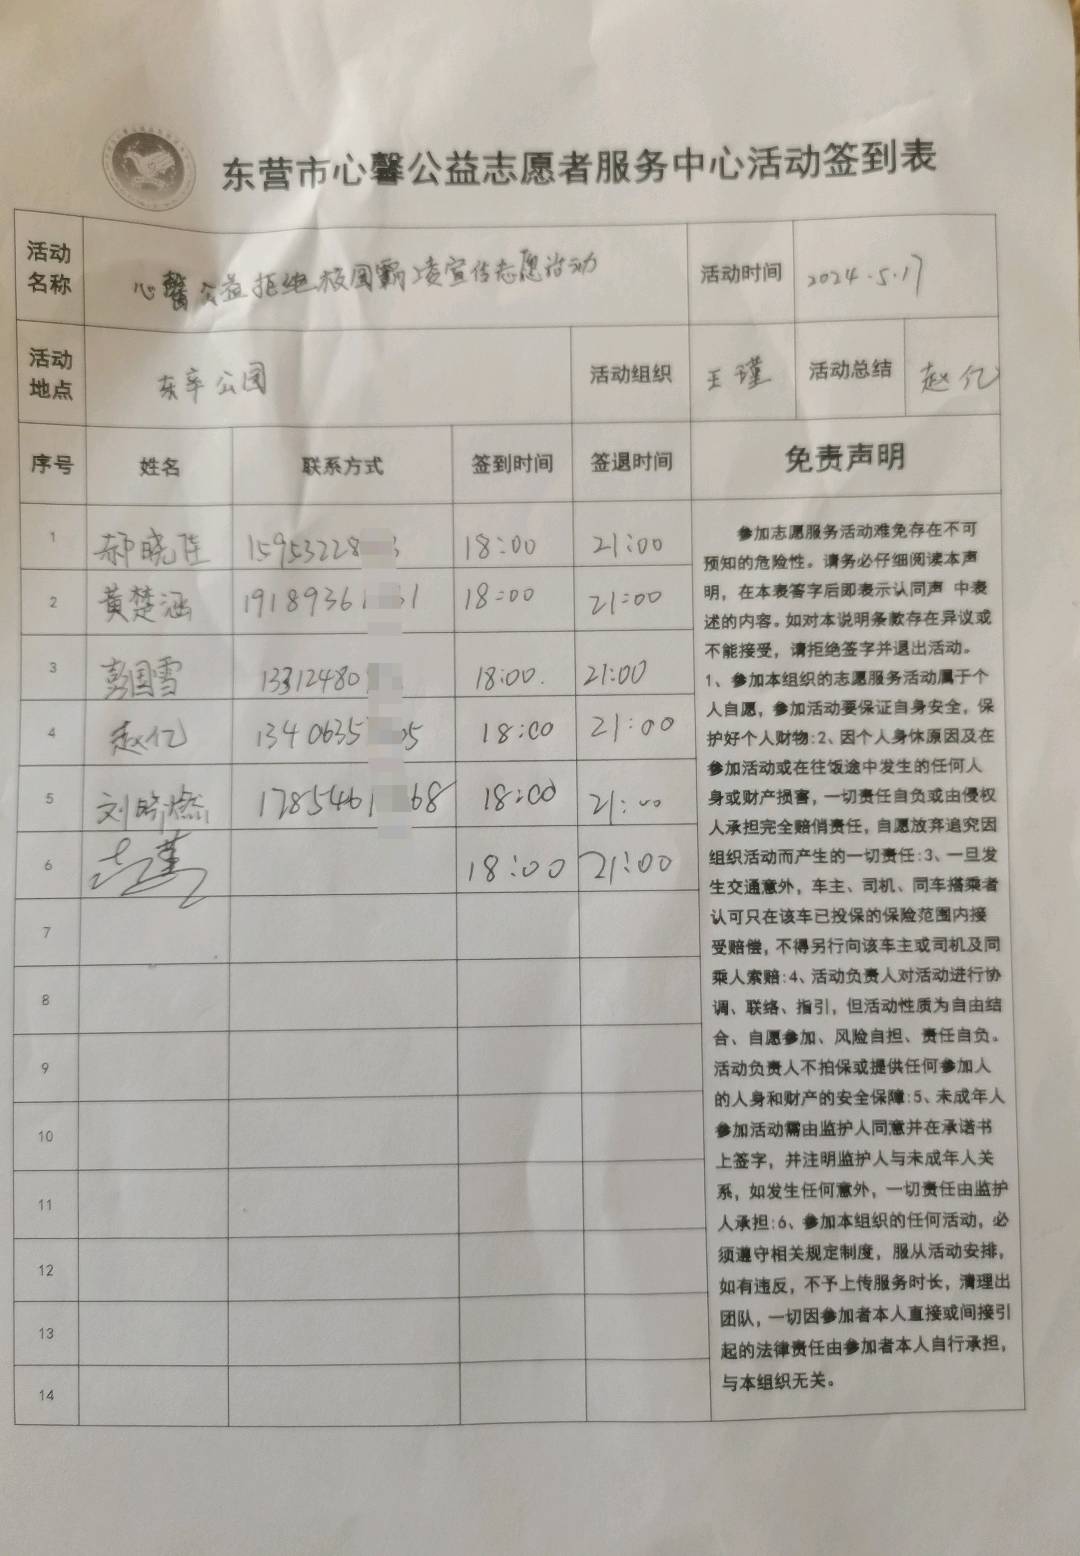 东营市心馨公益志愿者服务中心活动签到表
活动名称 心馨公益拒绝校园霸凌宣传志愿活动 活动时间 2024.5.17
活动地点 东辛公园 活动组织 王瑾 活动总结 赵亿
序号 姓名 联系方式 签到时间 签退时间 免责声明
1 郝晓佳 15953228 3 18:00 21:00
2 黄楚涵 19189361 31 18:00 21:00
3 彭国雪 13312480 18:00. 21:00
4 赵亿 1340635 05 18:00 21:00
5 刘 燃 1785461 68 18:00 21:00
6 18:00 21:00
7
8
9
10
11
12
13
14
参加志愿服务活动难免存在不可
预知的危险性。请务必仔细阅读本声
明，在本表答字后即表示认同声 中表
述的内容。如对本说明条款存在异议或
不能接受，请拒绝签字并退出活动。
1、参加本组织的志愿服务活动属于个
人自愿，参加活动要保证自身安全，保
护好个人财物:2、因个人身休原因及在
参加活动或在往饭途中发生的任何人
身或财产损害，一切责任自负或由侵权
人承担完全赔偿责任，自愿放弃追究因
组织活动而产生的一切责任:3、一旦发
生交通意外，车主、司机、同车搭乘者
认可只在该车已投保的保险范围内接
受赔偿，不得另行向该车主或司机及同
乘人索赔:4、活动负责人对活动进行协
调、联络、指引，但活动性质为自由结
合、自愿参加、风险自担、责任自负。
活动负责人不拍保或提供任何参加人
的人身和财产的安全保障:5、未成年人
参加活动需由监护人同意并在承诺书
上签字，并注明监护人与未成年人关
系，如发生任何意外，一切责任由监护
人承担:6、参加本组织的任何活动，必
须遵守相关规定制度，服从活动安排，
如有违反，不予上传服务时长，清理出
团队，一切因参加者本人直接或间接引
起的法律责任由参加者本人自行承担，
与本组织无关。